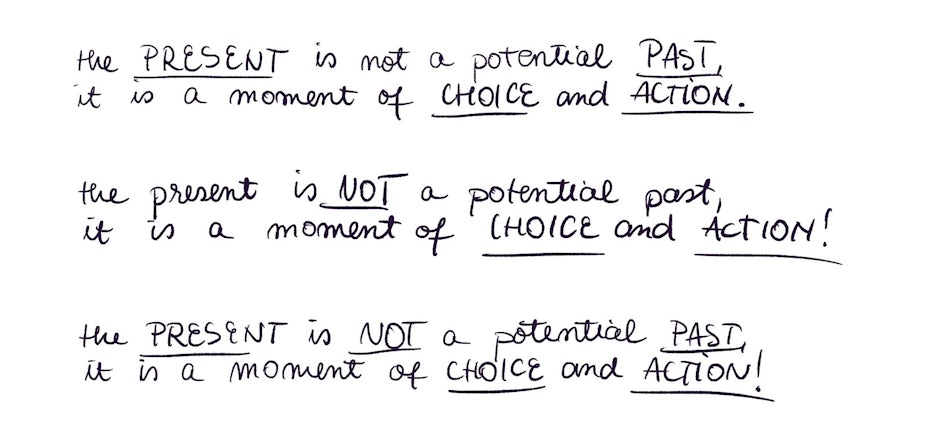 the PRESENT is not a potential PAST,
it is a moment of CHOICE and ACTION.
the present is NOT a potential past,
it is a moment of CHOICE and ACTION!
the PRESENT is NOT a potential PAST,
it is a moment of CHOICE and ACTION!